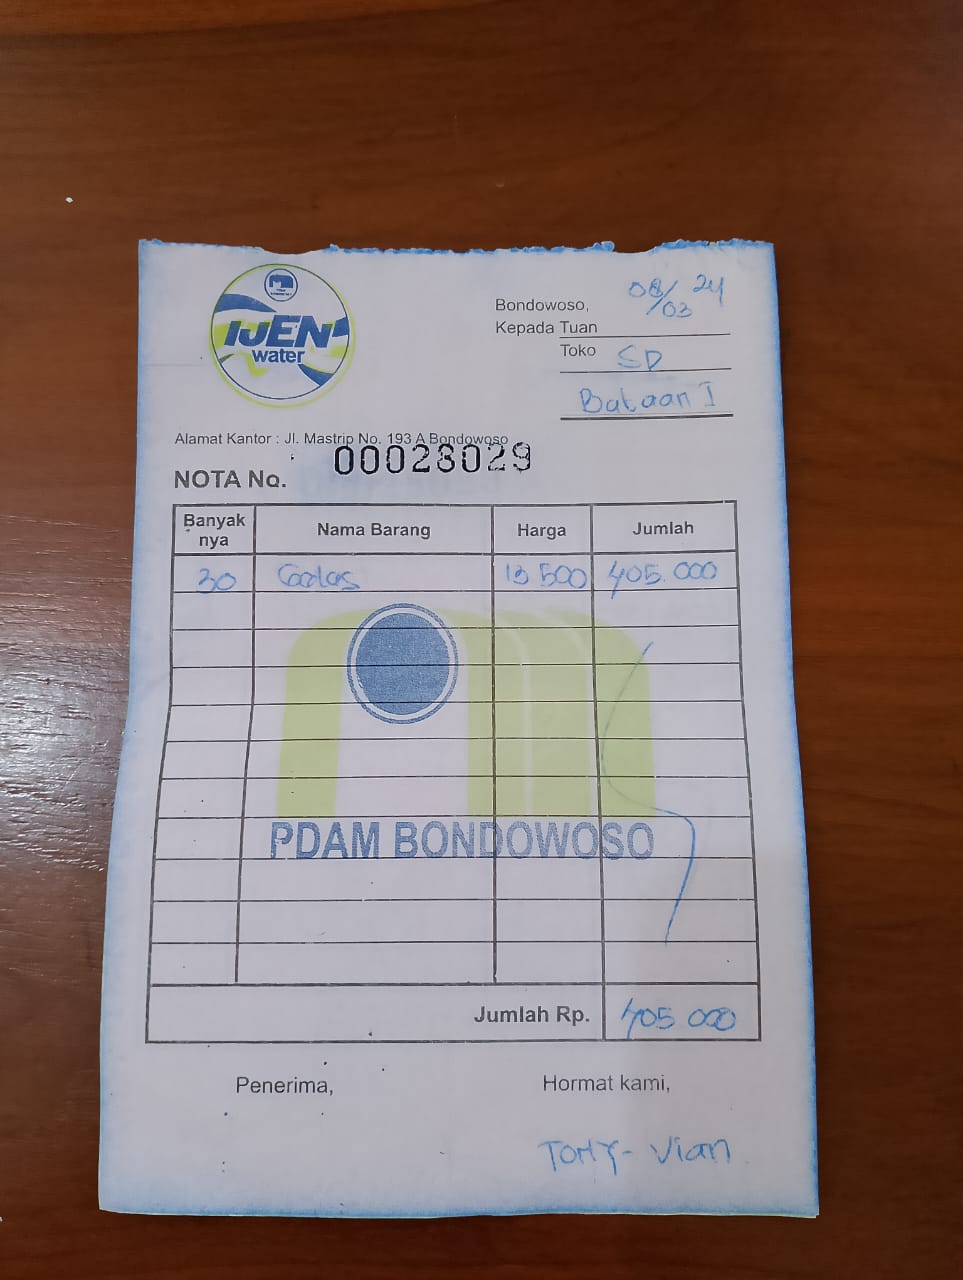 IJEN
water
Bondowoso, 08/03 24
Kepada Tuan
Toko SD
Bataan I
Alamat Kantor : Jl. Mastrip No. 193 A Bondowoso
NOTA No. 00028029
Banyak nya Nama Barang Harga Jumlah
30 Gelas 13 500 405.000
PDAM BONDOWOSO
Jumlah Rp. 405 000
Penerima, Hormat kami,
Vian